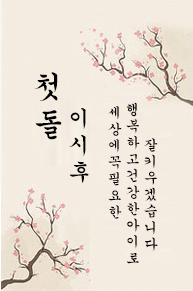 첫돌
이시후
세상에꼭필요한
행복하고건강한아이로
잘키우겠습니다